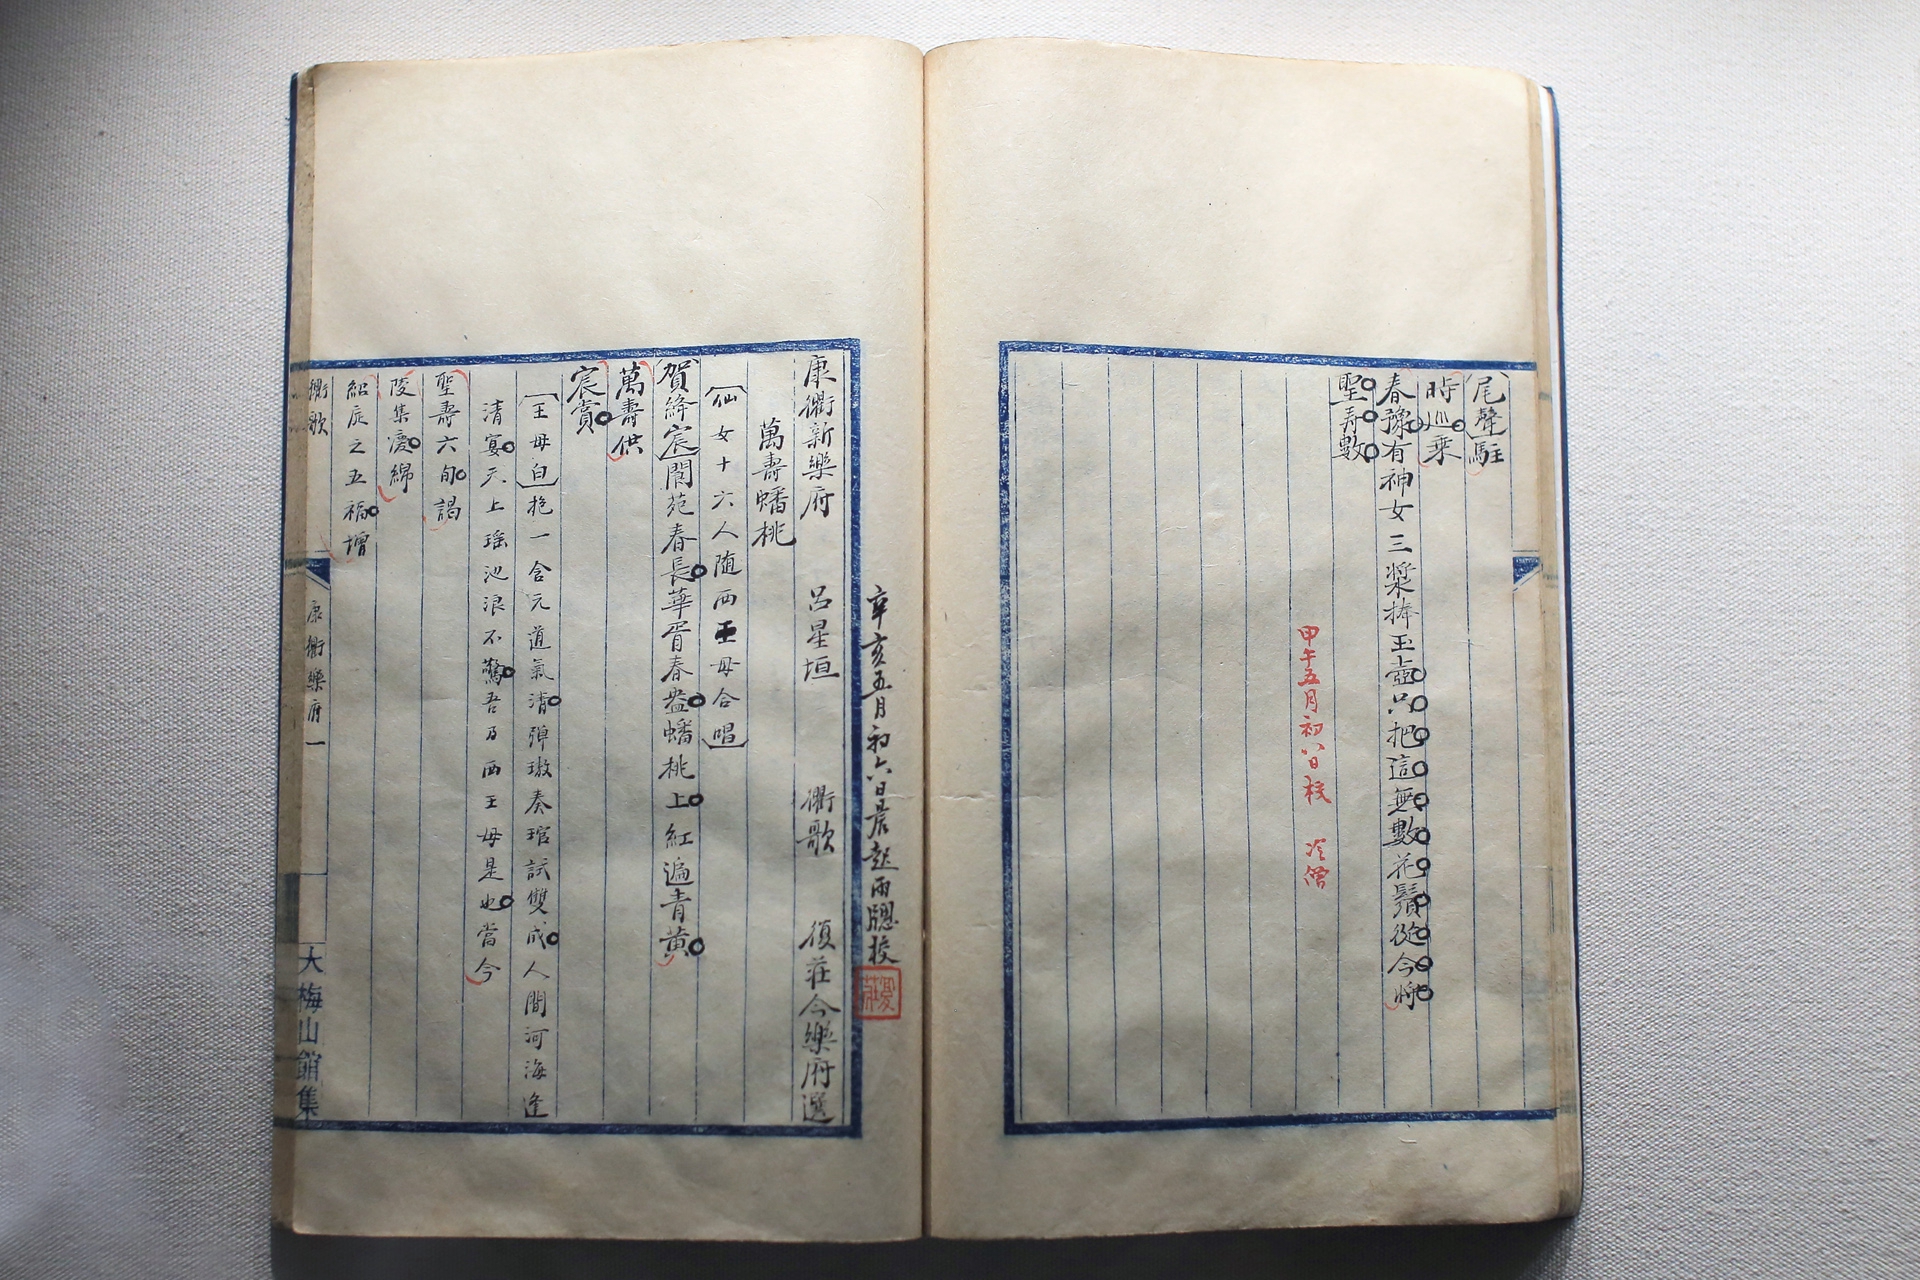 尾聲駐
時巡乘
春豫有神女三漿捧玉壺只把這無數花鬚從今將
聖壽數
甲午五月初八日校 冷僧
辛亥五月初六日晨起雨牕校
康衢新樂府 呂星垣 衢歌 復莊今樂府選
萬壽蟠桃
仙女十六人隨西王母合唱
賀絳宸閬苑春長華胥春盎蟠桃上紅遍青黃
萬壽供
宸賞
王母白抱一含元道氣清彈璈奏琯試雙成人間河海逢
清宴天上瑤池浪不驚吾乃西王母是也當今
聖壽六旬謁
陵集慶綿
紹庭之五福增
衢歌 康衢樂府 一 大梅山館集